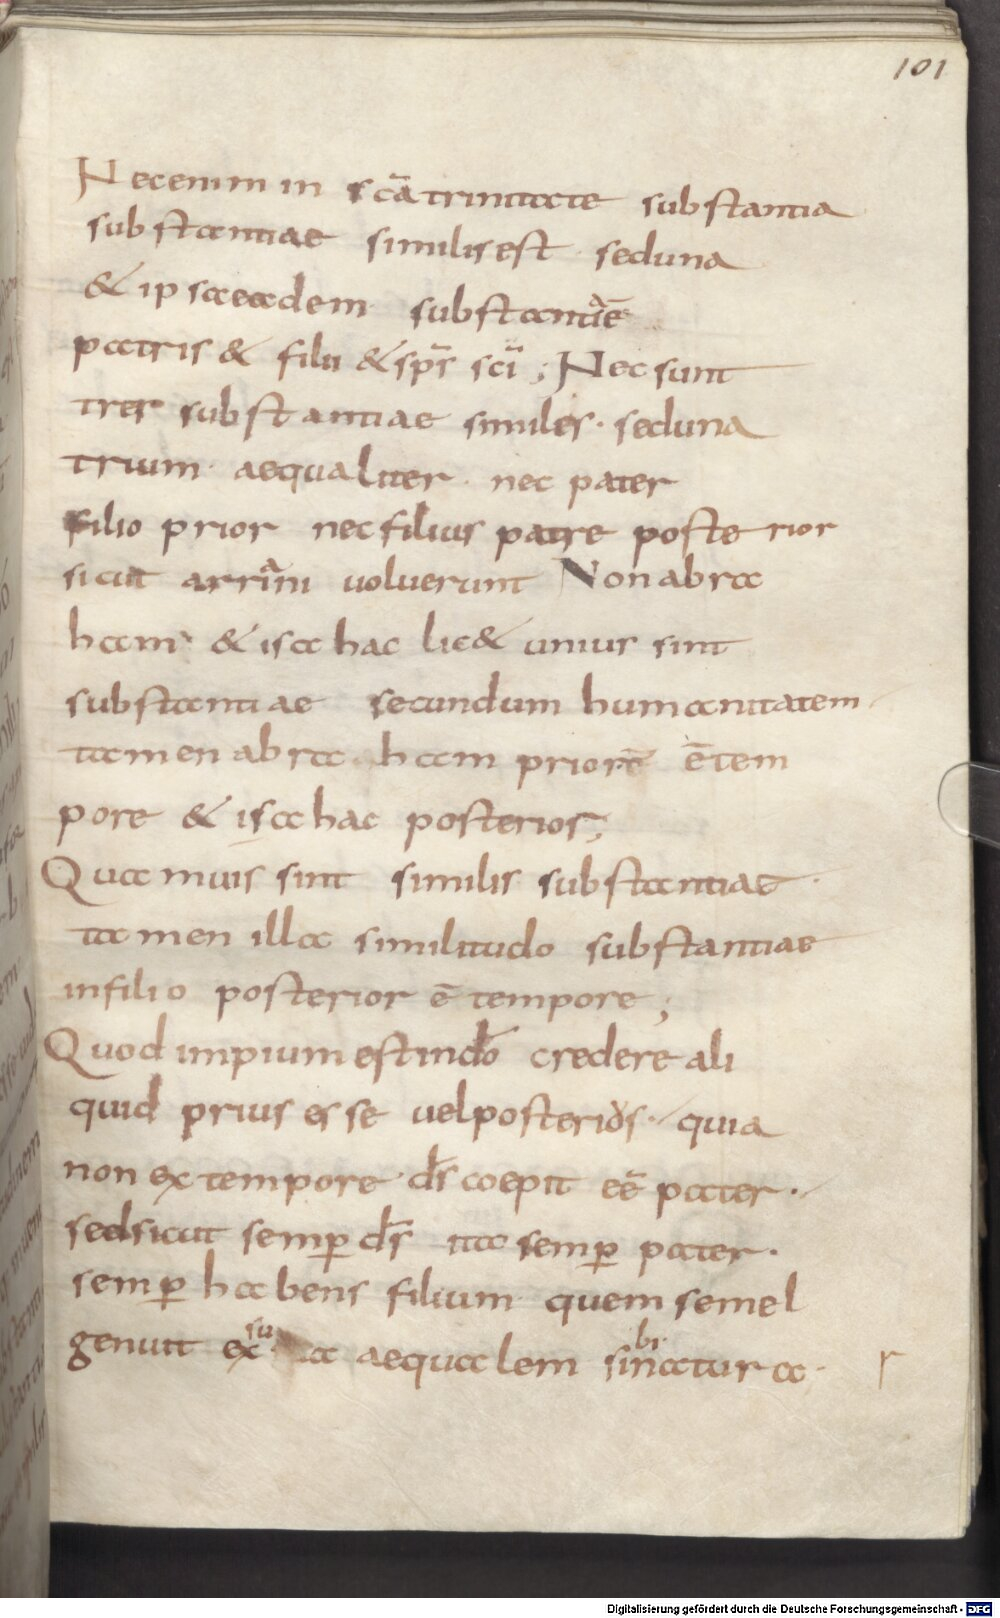 101
Necenim in scā trinitate substantia
substantiae similis est sed una
& ipsa eadem substantiae
patris & filii & sp̄s sc̄i ; Nec sunt
tres substantiae similes · sed una
trium · aequaliter · nec pater
filio prior nec filius patre posterior
sicut arriani voluerunt Non abra
ham & isahac lic& unius sint
substantiae secundum humanitatem
tamen abraham priorē ē tem
pore & isahac posterior;
Quamuis sint similis substantiae ·
tamen illa similitudo substantiae
in filio posterior ē tempore ;
Quod impium est in dō credere ali
quid prius esse uel posterios · quia
non ex tempore d̄s coepit eē pater ·
sed sicut semꝑ d̄s ita semꝑ pater ·
semꝑ habens filium quem semel
su bi
genuit ex a aequalem sinatura · r
Digitalisierung gefördert durch die Deutsche Forschungsgemeinschaft - DFG